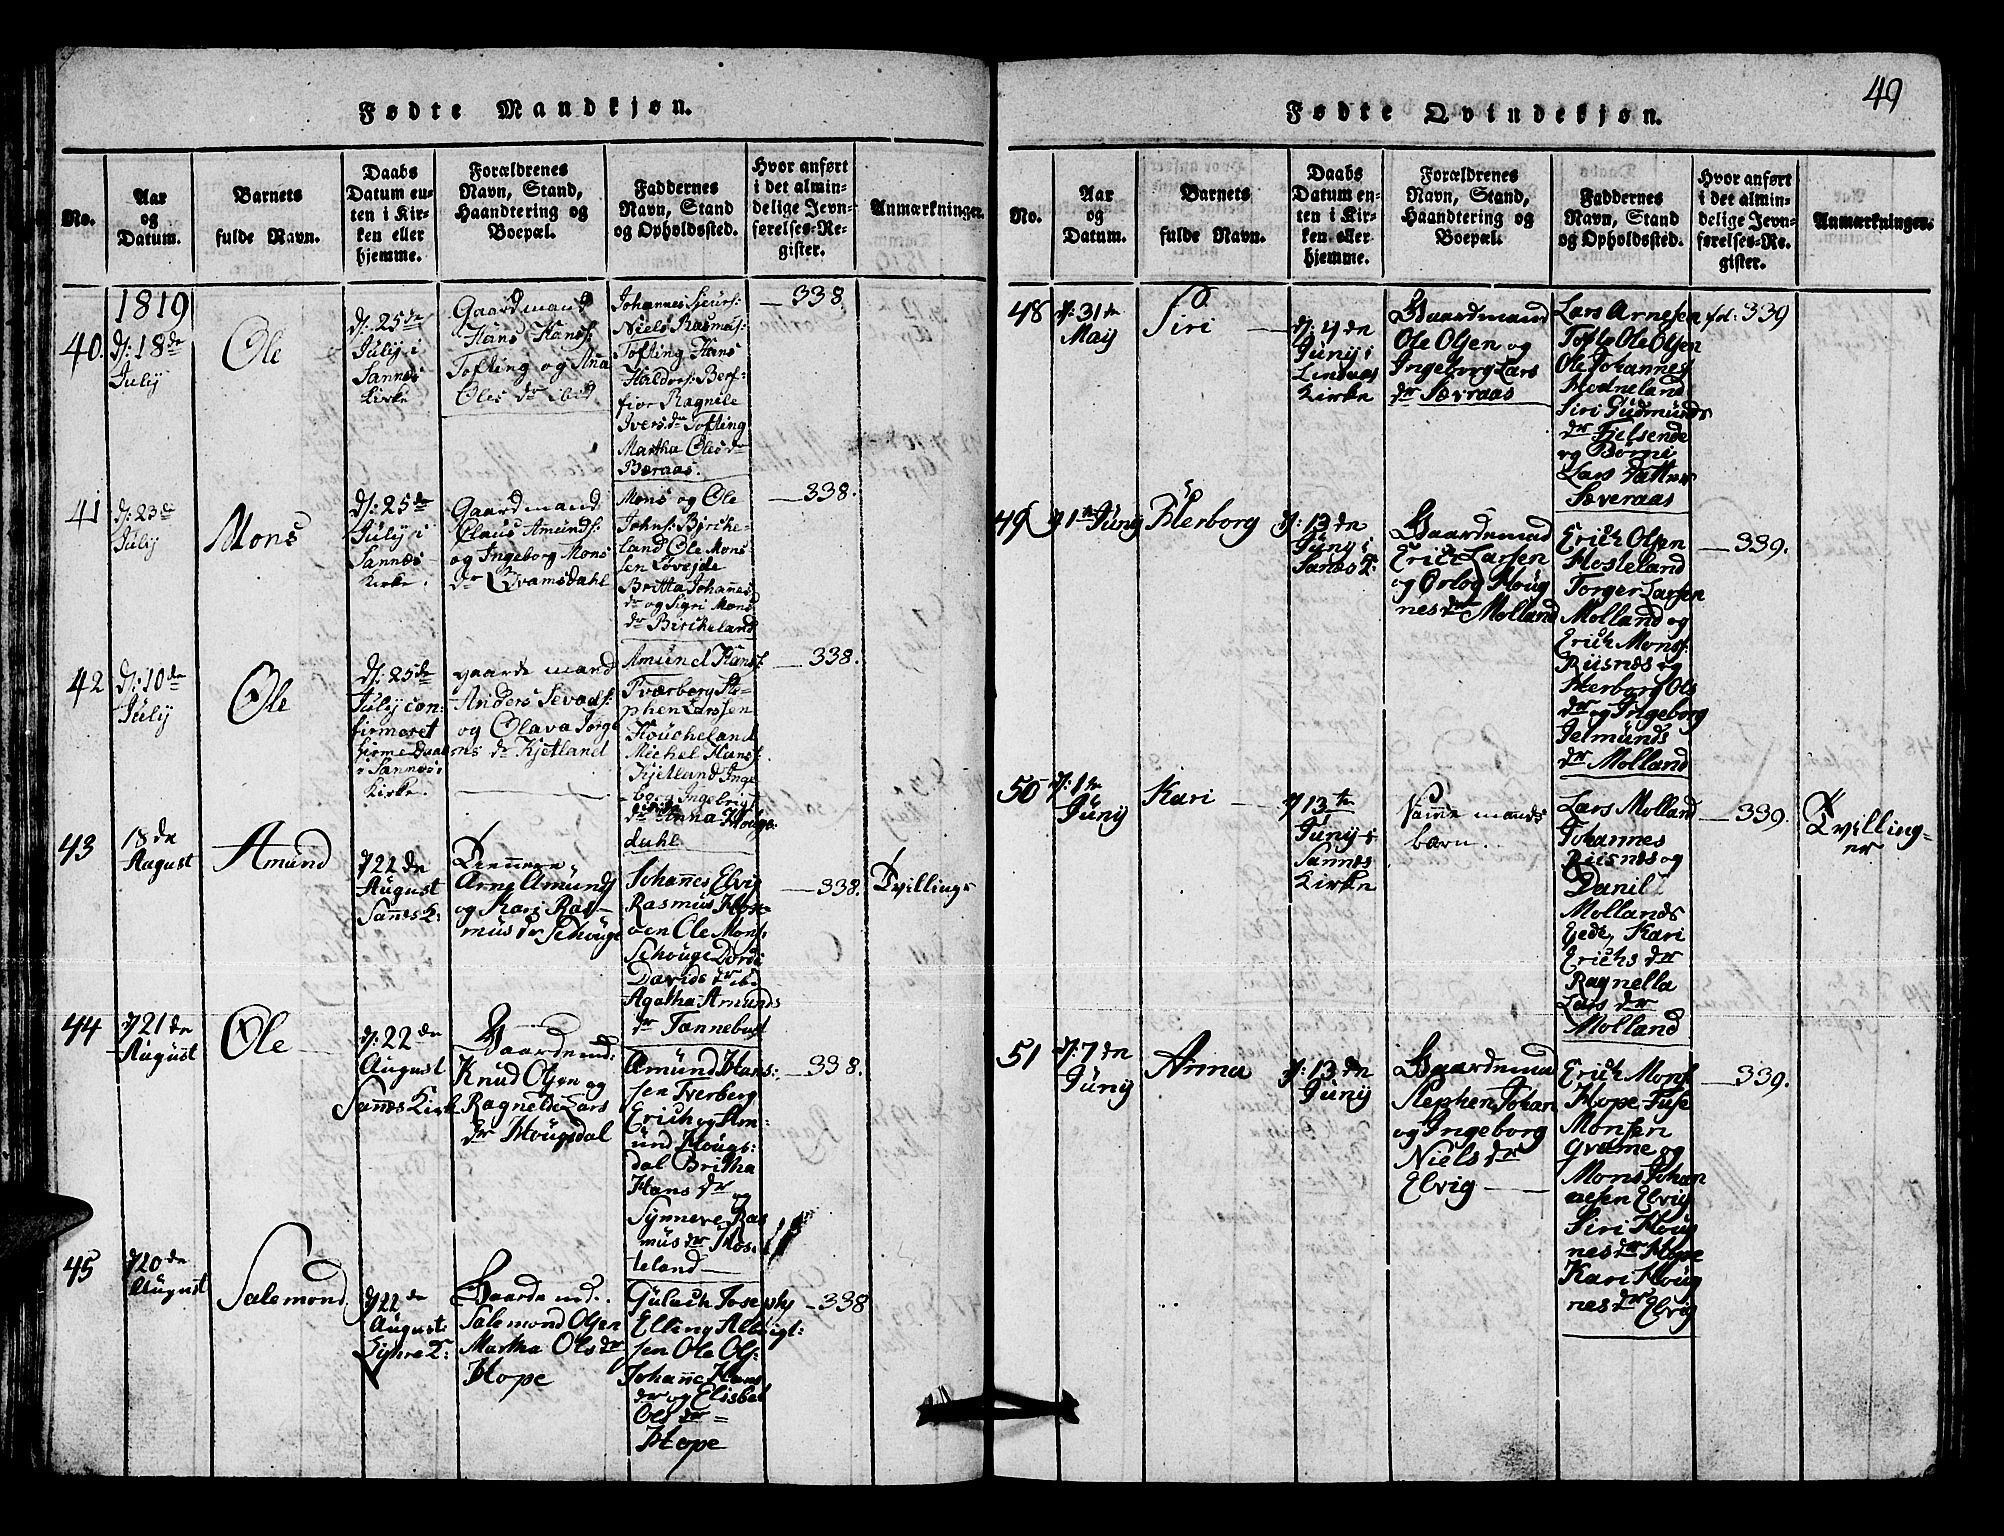 Fødte Mandkjøn.
No.
Aar
og
Datum.
Barnets
fulde Navn.
Daabs
Datum en-
ten i Kir-
ken eller
hjemme.
Forældrenes
Navn, Stand,
Haandtering og
Boepæl.
Faddernes
Navn, Stand
og Opholdssted.
Hvor anført
i det almin-
delige Jevn-
førelses-Re-
gister.
Anmærkninger.
1819
40.
d: 18de
Julij
Ole
d: 25de
Julij i
Sannes
Kirke
Gaardmand
Hans Hans:
Tofting og Anna
Ols dr ibid
Johannes Sieurs:
Niels Rasmus:
Tofting Hans
Haldors: Berf-
fior Ragnile
Ivers dr Tofting
Martha Oles dr
Bæraas.
338.
41
d: 23de
Julij
Mons
d: 25de
Julij i
Sannæs
Kirke.
Gaardmand
Claus Amunds:
og Ingeborg Mons
dr Qvamsdahl
Mons og Ole
Johns: Birke-
land Ole Mons
sen Lovejde
Britta Johannes
dr og Sigri Mons
dr Birkeland
338.
42
d: 10de
Julij
Ole
d: 25de
Julij con-
firmeret
hiemedaab
i Sannæs
Kirke.
gaardemand
Anders Sevads:
og Olava Jørge
ns dr Kjetland
Amund Hans
Tværborg Ste-
phen Larssen
Houcheland
Michel Hans
Kjetland Inge
borg Ingebrigt
dr Anna Hougs
dahl
338.
43
18de
August
Amund
d 22de
August
Sannes K:
Tienere
Arne Amunds
og Kari Ras-
mus dr Schouge
Johannes Elvig
Rasmus Hop-
øen Ole Mons:
Schouge Dorde
Davids dr ib:
Agatha Amunds
dr Tannebust
338.
Tvilling
44
d 21de
August
Ole
d: 22de
August
Sannes Kirk
Gaardemd:
Knud Olsen og
Ragnelde Lars
dr Hougsdal
Amund Hans:
sen Tverberg
Erich og Am:
und Hougs:
dal Britha
Hans dr og
Synneve Ras
mus dr Hos-
teland
338.
45
d 20de
August
Salemond
d 22de
August
Gaardemd.
Salemond Olsen
Martha Ols dr
Hope
Gulach Joseph
Elling Albrigt-
sen Ole Ols:
Johanne Hans
dr og Elisbet
Ols dr
Hope
338
49
Fødte Qvindekjøn.
No.
Aar
og
Datum.
Barnets
fulde Navn.
Daabs
Datum en-
ten i Kir-
ken eller
hjemme.
Forældrenes
Navn, Stand,
Haandtering og
Boepæl.
Faddernes
Navn, Stand
og Opholdssted.
Hvor anført
i det almin-
delige Jevn-
førelses-Re-
gister.
Anmærkninger.
48
d: 31te
May
Siri
d: 4de
Junij i
Lindaas
Kirke
Gaardmand
Ole Olsen og
Ingeborg Lars
dr Sævraas
Lars Arnesen
Ole Olsen
Ole Johannes
Hodneland
Siri Gudmunds
dr Fjelsende
og Børne
Lars Datter
Sæveraas
fol: 339
49
d 1te Junij
Herborg
d: 13de
Junij i
Sanes K:
Gaardemad
Erich Larsen
og Orlog Houg
nes dr Molland
Erich Olsen
Hosteland
Torger Larsen
Molland og
Erich Mons:
Riisnes og
Herborg Ols
dr og Ingeborg
Jelmunds
dr Molland
339.
50
d: 1te
Junij
Kari
d 13te
Junij i
Sannes
Kirke
Samme mands
barn.
Lars Molland
Johannes
Riisnes og
Danil
Mollands
Eede, Kari
Erichs dr
Ragnella
Lars dr
Molland
339.
Tvilling-
er
51
d: 7de
Junij
Anna
d: 13de
Junij
Gaardemand
Stephen Johan
og Ingeborg
Niels dr
Elvig
Erich Mons
Hope Fuse
Monsen
Qvame og
Mons Johan
nesen Elvig
Siri Houg
nes dr Hope
Kari Houg
nes dr Elvig
339.